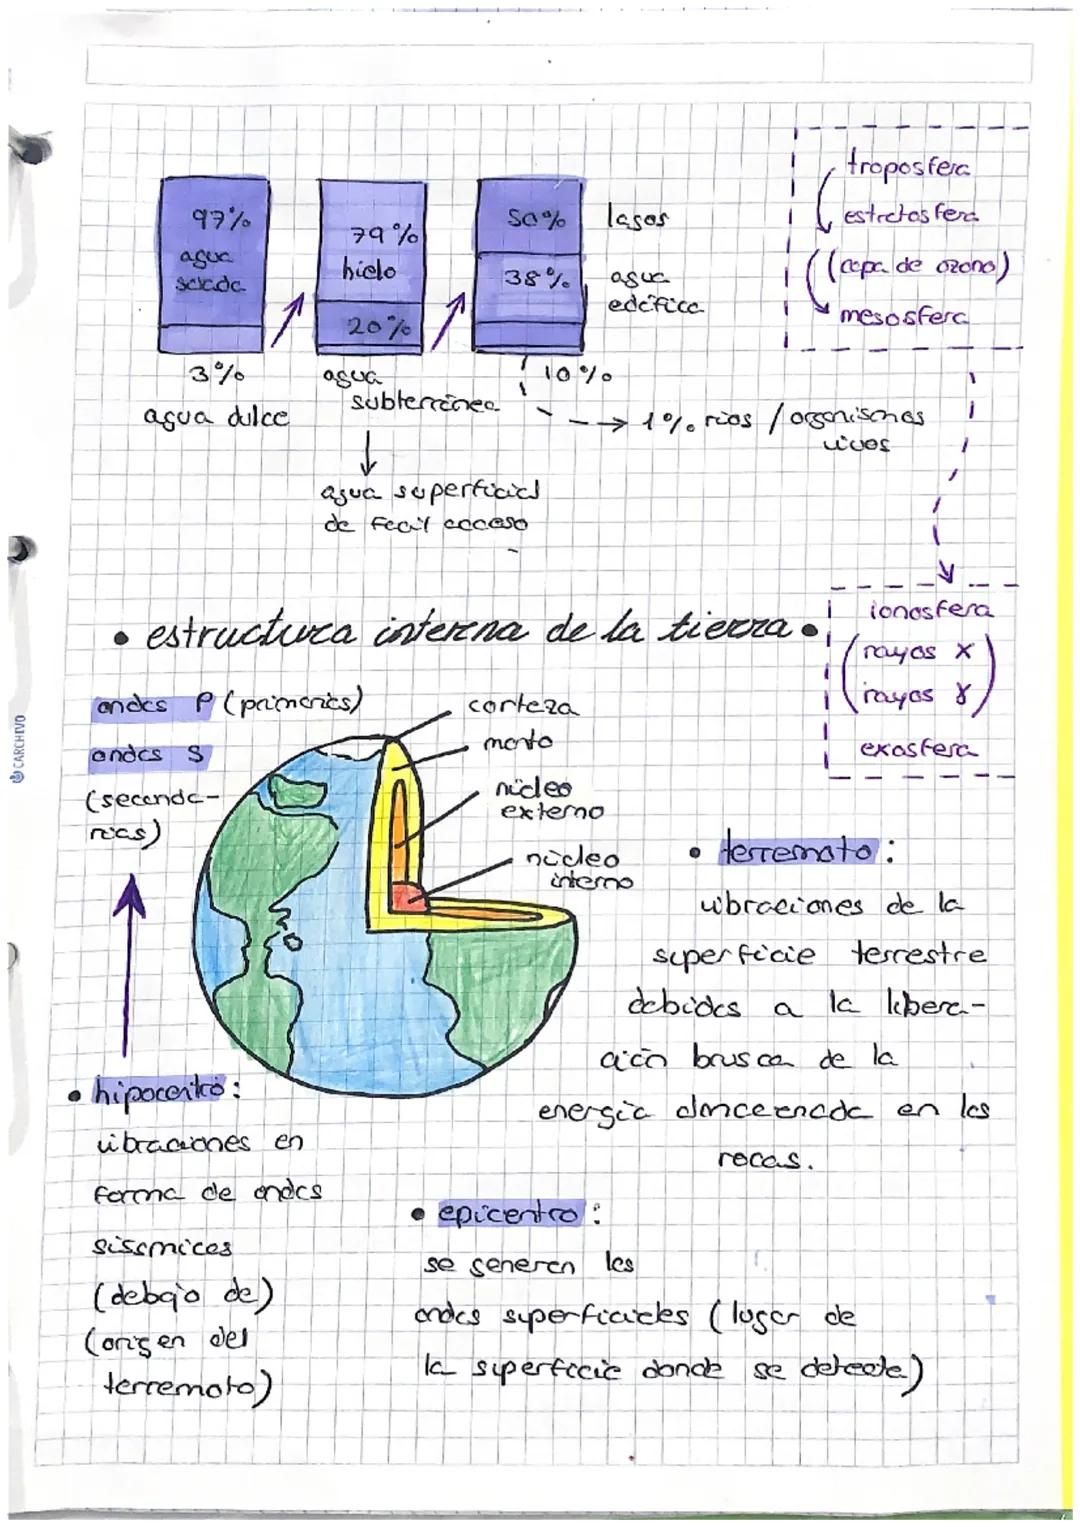 97%
agua
salada
3%
agua dulce
79%
hielo
20%
agua
subterránea
agua superficial
de facil acceso
50%
lagos
38%
agua
edáfica
10%
1% rios / organismos
vivos
troposfera
estratosfera
(capa de ozono)
mesosfera
ionosfera
rayos X
rayos γ
exosfera
• estructura interna de la tierra •
ondas P (primarias)
ondas S
(secunda-
rias)
corteza
manto
núcleo
externo
núcleo
interno
• terremoto:
vibraciones de la
superficie terrestre
debidas a la libera-
ción brusca de la
energía almacenada en las
rocas.
• hipocentro:
vibraciones en
forma de ondas
sísmicas
(debajo de)
(origen del
terremoto)
• epicentro:
se generan las
ondas superficiales (lugar de
la superficie donde se detecta)
CARCHIVO